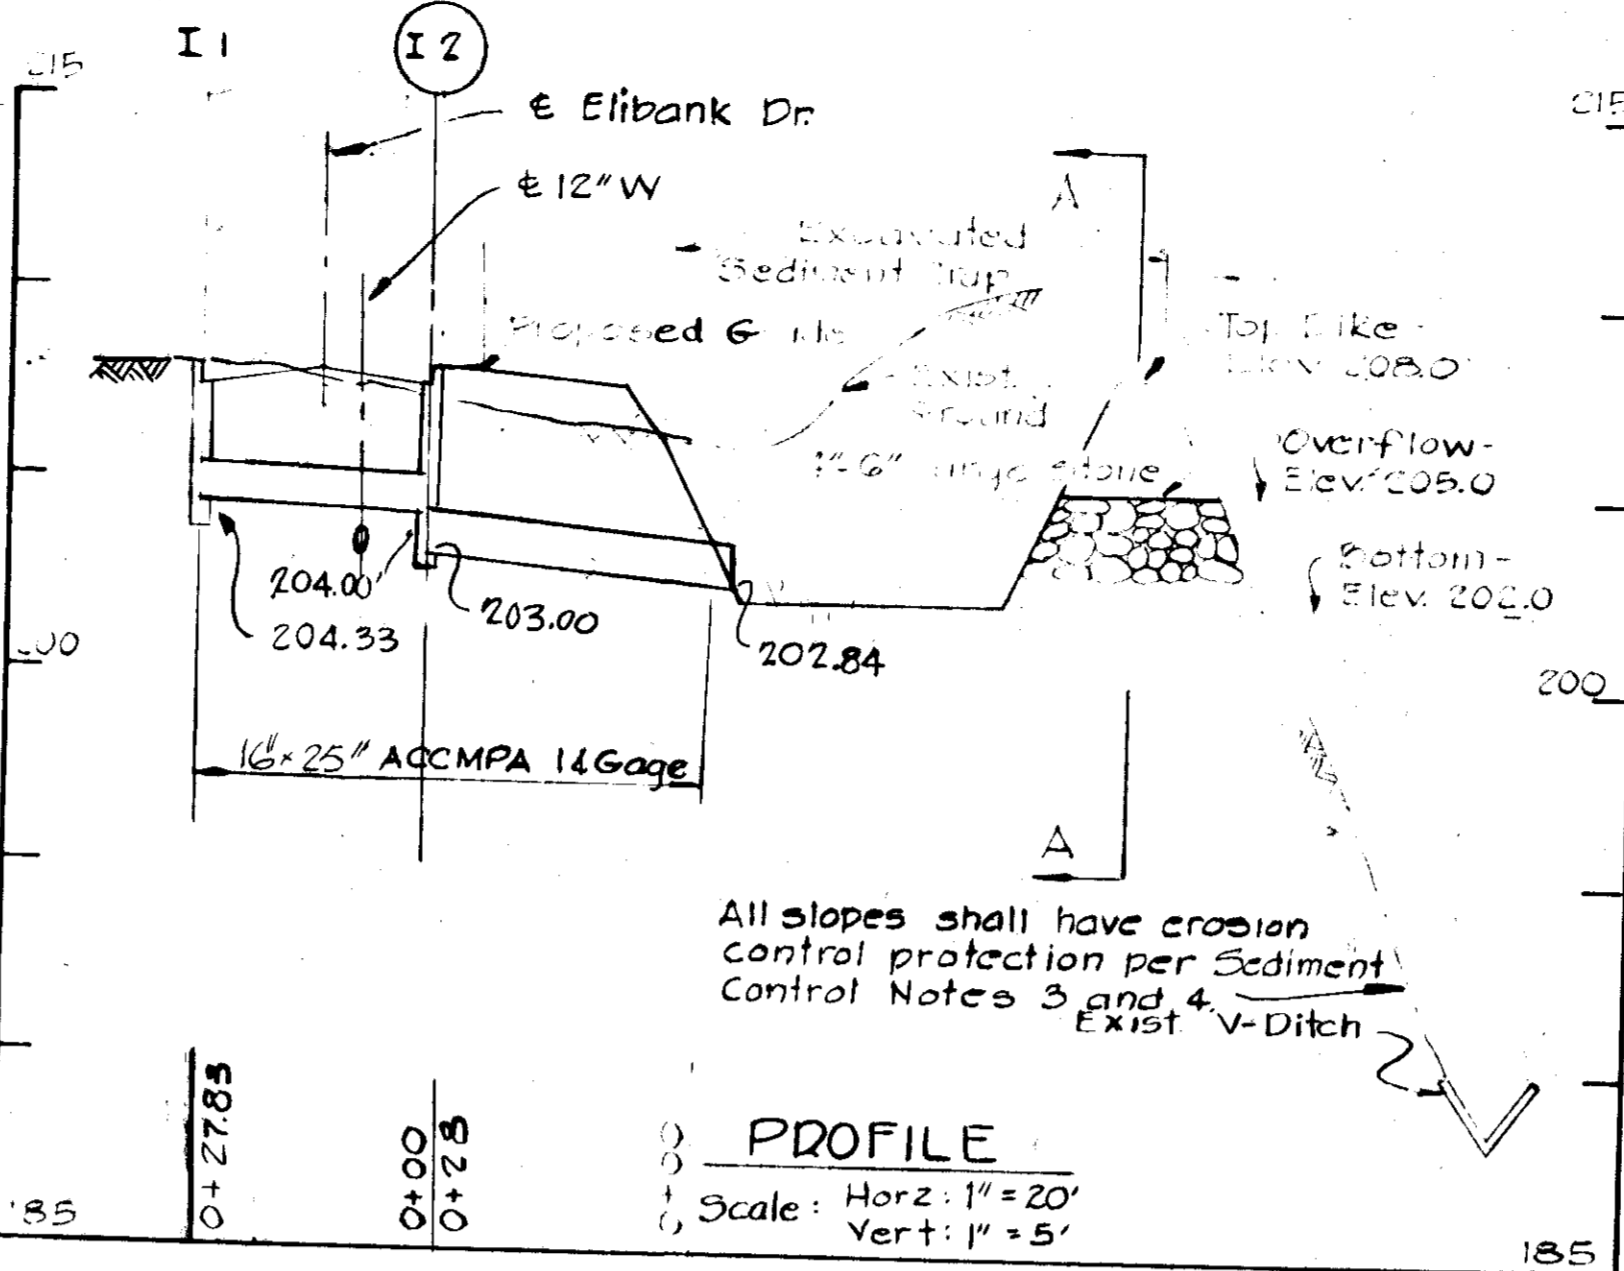 I 1
I 2
215
215
℄ Elibank Dr.
℄ 12" W
A
Excavated
Sediment Trap
Proposed Grade
Top Dike -
Elev. 208.0
Exist.
Ground
4"-6" stone
Overflow-
Elev. 205.0
Bottom-
Elev. 202.0
204.00'
204.33
203.00
202.84
200
200
16"x25" ACCMPA 14 Gage
A
All slopes shall have erosion
control protection per Sediment
Control Notes 3 and 4.
Exist. V-Ditch
0+27.83
0+00
0+28
0+00
PROFILE
Scale: Horz: 1" = 20'
Vert: 1" = 5'
185
185